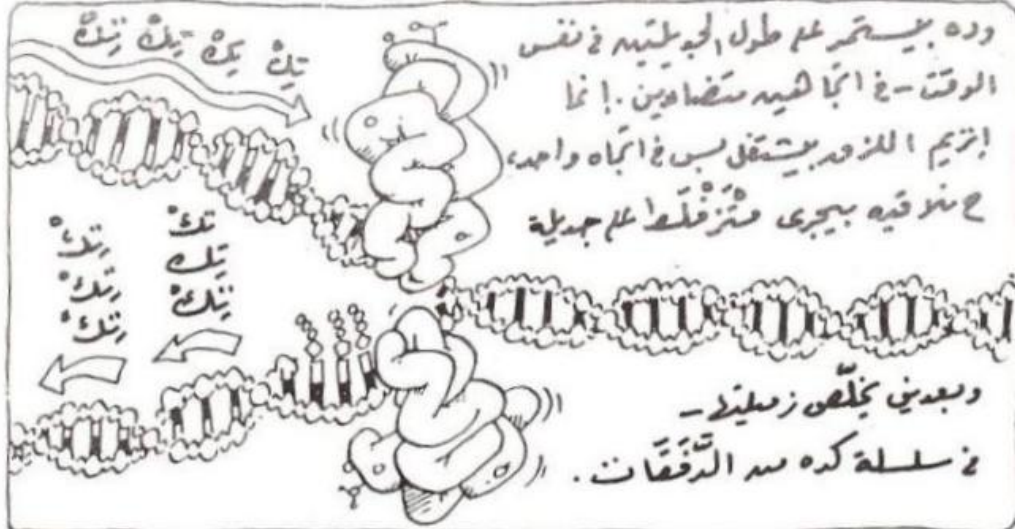 وده بيستمر على طول الجديلتين في نفس
الوقت - في اتجاهين متضادين. إنما
إنزيم اللزق بيشتغل بس في اتجاه واحد،
ح نلاقيه بيجرى متزفلط على جديلة
تِكْ تِكْ تِكْ تِكْ
تِكْ
تِكْ
تِكْ
تِكْ
تِكْ
تِكْ
وبعدين يخلّص زميلتها -
في سلسلة كده من الدَّفَقَات.